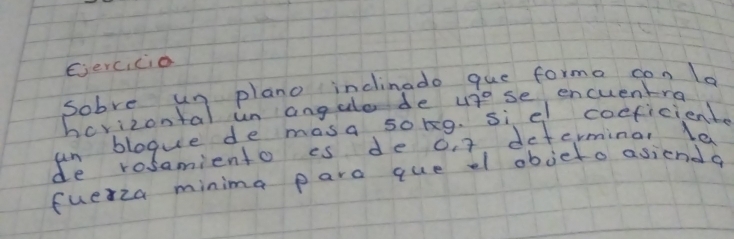 Ejercicio
Sobre un plano inclinado que forma con la
horizontal un angulo de 47° se encuentra
un bloque de masa 50kg. si el coeficiente
de rosamiento es de 0,7 determinar la
fuerza minima para que el objeto asienda